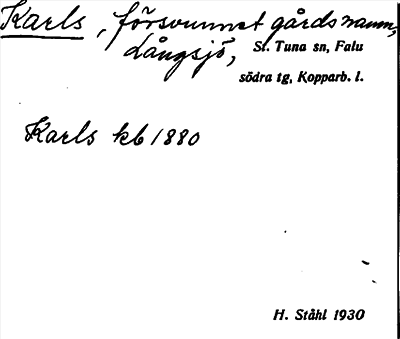 Karls, försvunnet gårdsnamn,
Långsjö, St. Tuna sn, Falu
södra tg, Kopparb. l.
Karls kb 1880
H. Ståhl 1930